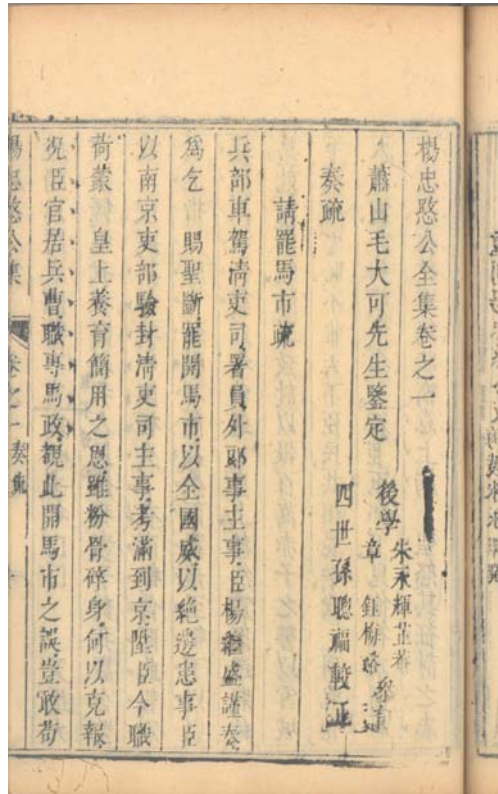 楊忠愍公全集卷之一
蕭山毛大可先生鑒定
後學
朱永輝
章鈺
四世孫聰福較正
奏疏
請罷馬市疏
兵部車駕清吏司署員外郎事主事臣楊繼盛謹奏
爲乞賜聖斷罷開馬市以全國威以絶邊患事臣
以南京吏部驗封清吏司主事考滿到京陞臣今職
荷蒙皇上養育簡用之恩雖粉骨碎身何以克報
況臣官居兵曹職專馬政覩此開馬市之誤豈敢苟
楊忠愍公集
卷之一奏疏